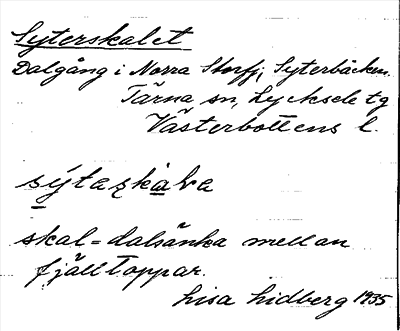 Syterskalet
Dalgång i Norra Storfj, Syterbäcken.
Tärna sn, Lycksele tg
Västerbottens l.
sýtaskàlva
skal = dalsänka mellan
fjälltoppar.
Lisa Lidberg 1935